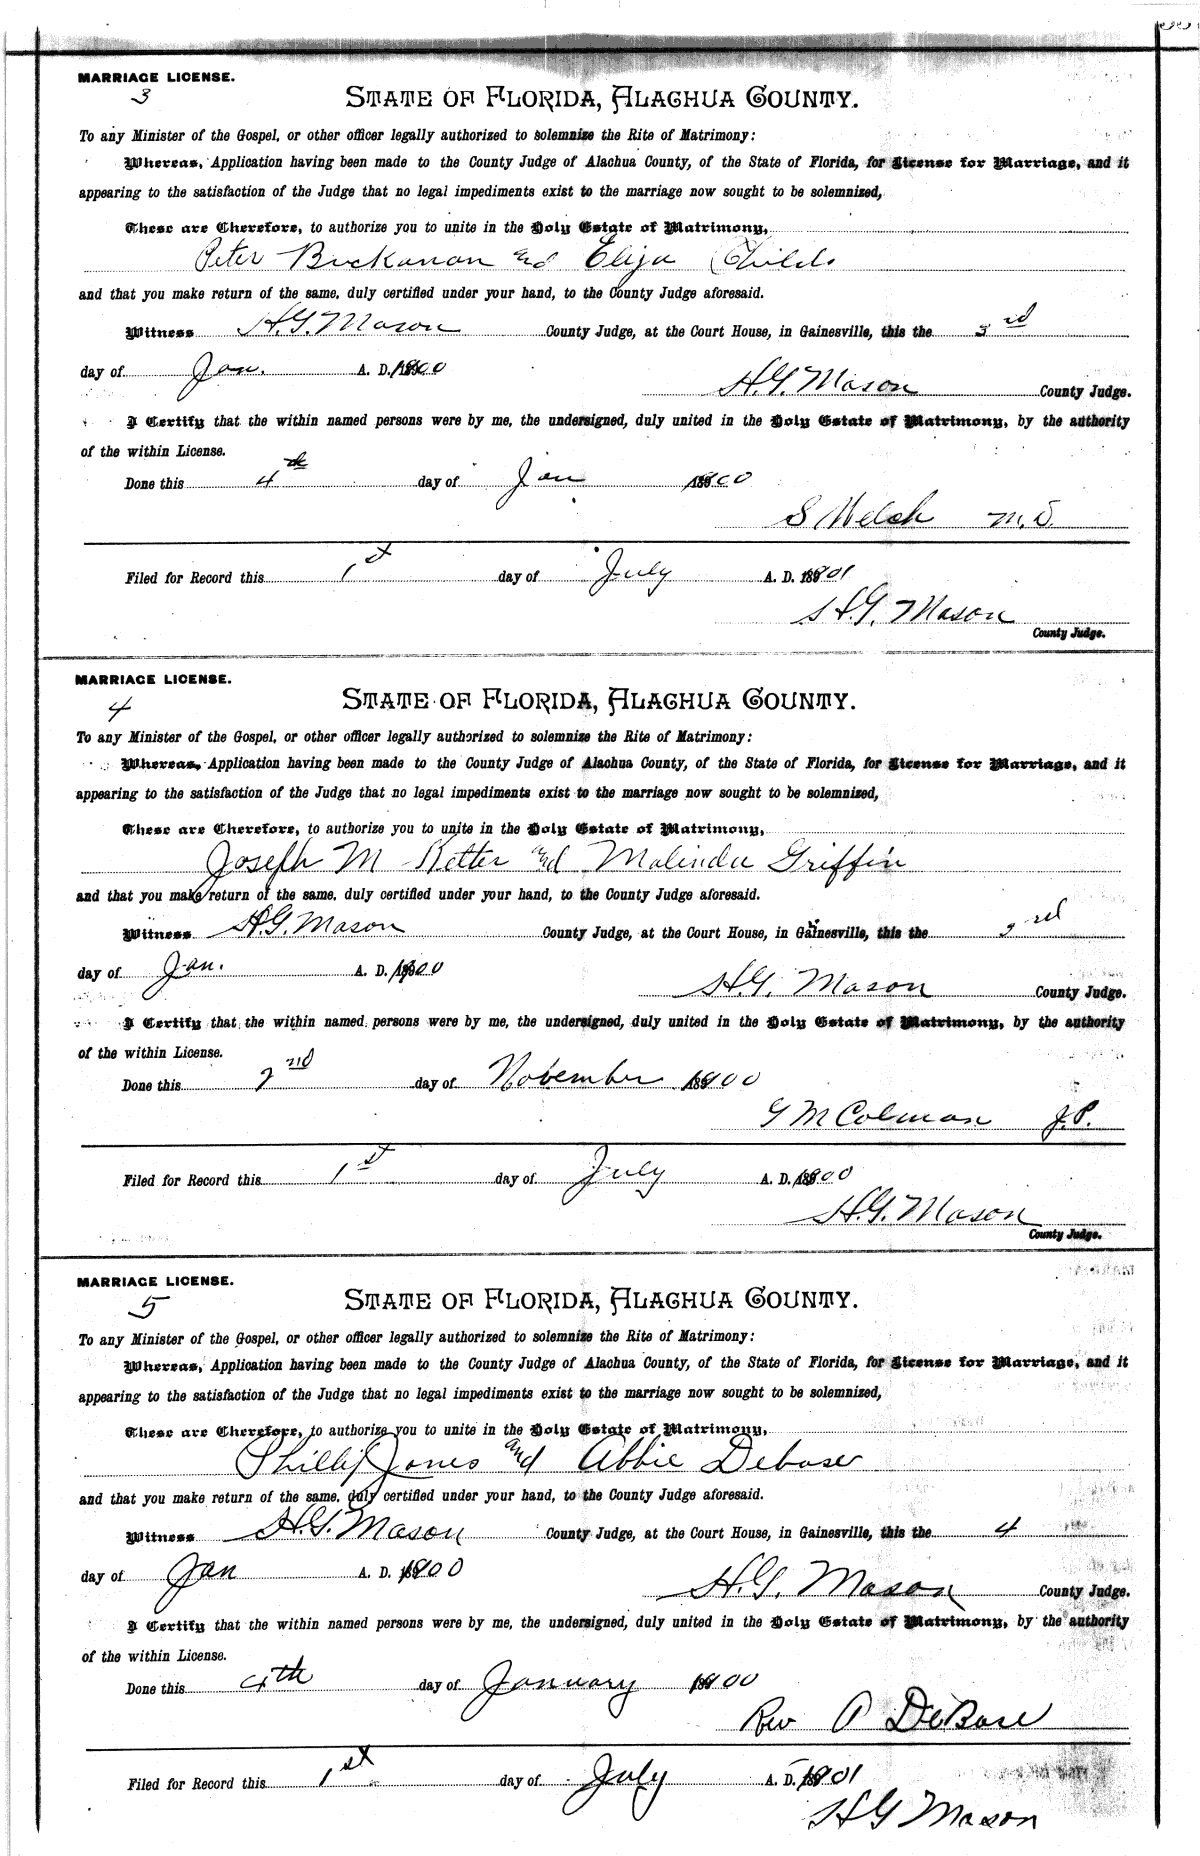 MARRIAGE LICENSE.
3
STATE OF FLORIDA, ALACHUA COUNTY.
To any Minister of the Gospel, or other officer legally authorized to solemnize the Rite of Matrimony:
Whereas, Application having been made to the County Judge of Alachua County, of the State of Florida, for License for Marriage, and it
appearing to the satisfaction of the Judge that no legal impediments exist to the marriage now sought to be solemnized,
These are Therefore, to authorize you to unite in the Holy Estate of Matrimony,
Peter Buckanan and Eliza Childs
and that you make return of the same, duly certified under your hand, to the County Judge aforesaid.
Witness H.G. Mason County Judge, at the Court House, in Gainesville, this the 3rd
day of Jan. A. D. 1900
H.G. Mason County Judge.
I Certify that the within named persons were by me, the undersigned, duly united in the Holy Estate of Matrimony, by the authority
of the within License.
Done this 4th day of Jan 1900
S Welch M.D.
Filed for Record this 1st day of July A. D. 1901
H.G. Mason
County Judge.
MARRIAGE LICENSE.
4
STATE OF FLORIDA, ALACHUA COUNTY.
To any Minister of the Gospel, or other officer legally authorized to solemnize the Rite of Matrimony:
Whereas, Application having been made to the County Judge of Alachua County, of the State of Florida, for License for Marriage, and it
appearing to the satisfaction of the Judge that no legal impediments exist to the marriage now sought to be solemnized,
These are Therefore, to authorize you to unite in the Holy Estate of Matrimony,
Joseph M Retter and Malinda Griffin
and that you make return of the same, duly certified under your hand, to the County Judge aforesaid.
Witness H.G. Mason County Judge, at the Court House, in Gainesville, this the
day of Jan. A. D. 1900
H.G. Mason County Judge.
I Certify that the within named persons were by me, the undersigned, duly united in the Holy Estate of Matrimony, by the authority
of the within License.
Done this 2nd day of November 1900
G M Colman J.P.
Filed for Record this 1st day of July A. D. 1900
H.G. Mason
County Judge.
MARRIAGE LICENSE.
5
STATE OF FLORIDA, ALACHUA COUNTY.
To any Minister of the Gospel, or other officer legally authorized to solemnize the Rite of Matrimony:
Whereas, Application having been made to the County Judge of Alachua County, of the State of Florida, for License for Marriage, and it
appearing to the satisfaction of the Judge that no legal impediments exist to the marriage now sought to be solemnized,
These are Therefore, to authorize you to unite in the Holy Estate of Matrimony,
Phillip Jones and Abbie Debose
and that you make return of the same, duly certified under your hand, to the County Judge aforesaid.
Witness H.G. Mason County Judge, at the Court House, in Gainesville, this the 4
day of Jan A. D. 1900
H.G. Mason County Judge.
I Certify that the within named persons were by me, the undersigned, duly united in the Holy Estate of Matrimony, by the authority
of the within License.
Done this 4th day of January 1900
Rev P DeBose
Filed for Record this 1st day of July A. D. 1901
H G Mason